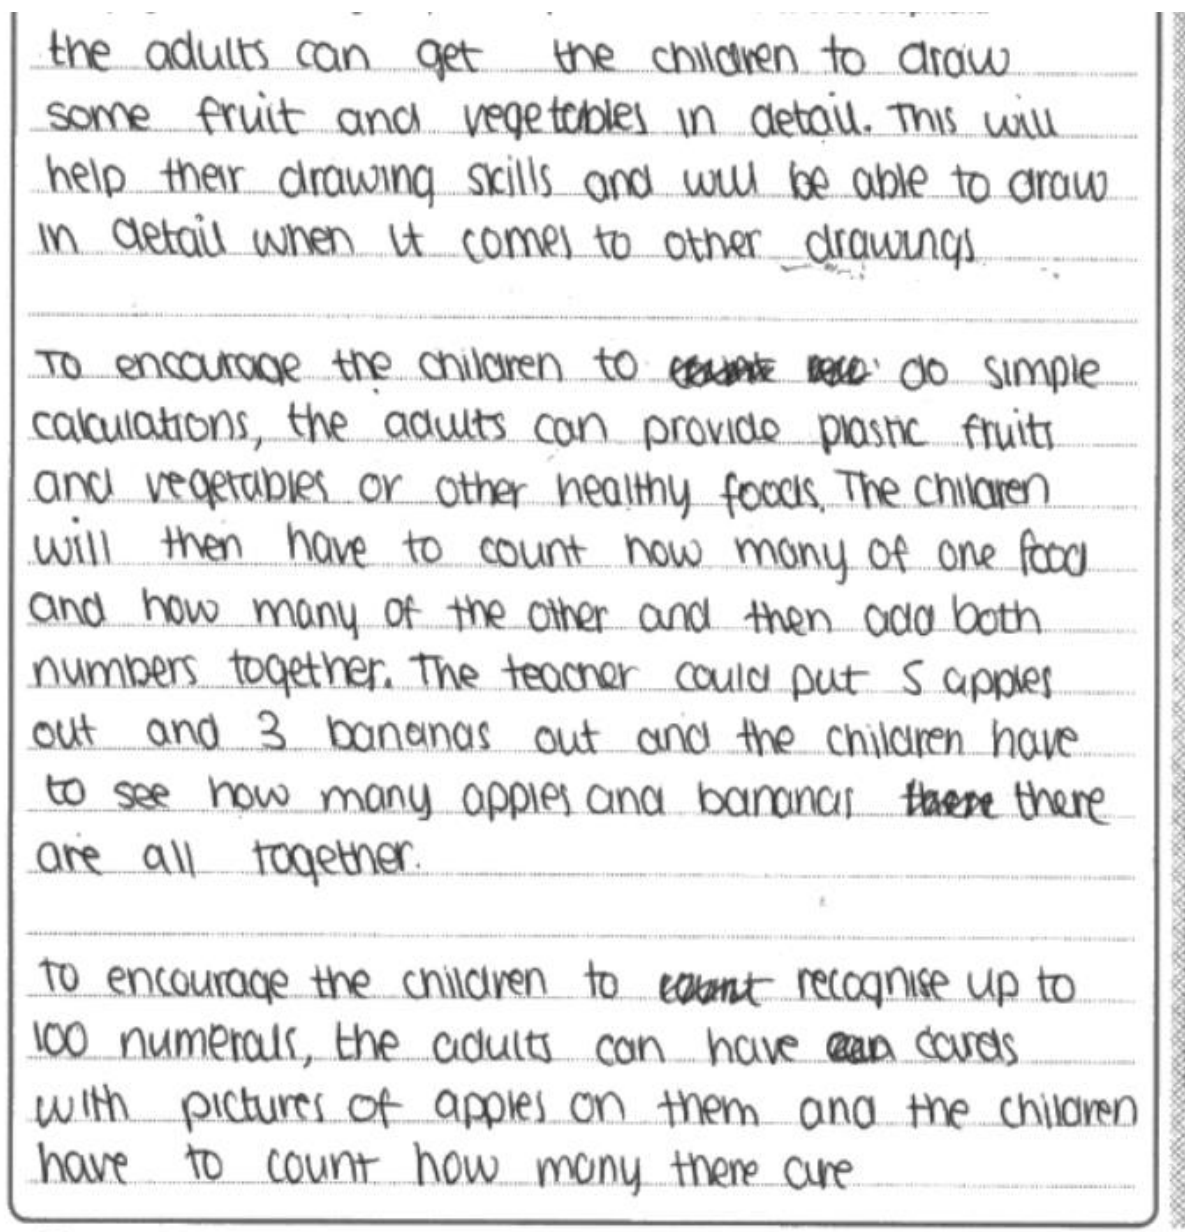 the adults can get the children to draw
some fruit and vegetables in detail. This will
help their drawing skills and will be able to draw
in detail when it comes to other drawings
To encourage the children to do simple
calculations, the adults can provide plastic fruits
and vegetables or other healthy foods. The children
will then have to count how many of one food
and how many of the other and then add both
numbers together. The teacher could put 5 apples
out and 3 bananas out and the children have
to see how many apples and bananas there
are all together.
To encourage the children to recognise up to
100 numerals, the adults can have cards
with pictures of apples on them and the children
have to count how many there are